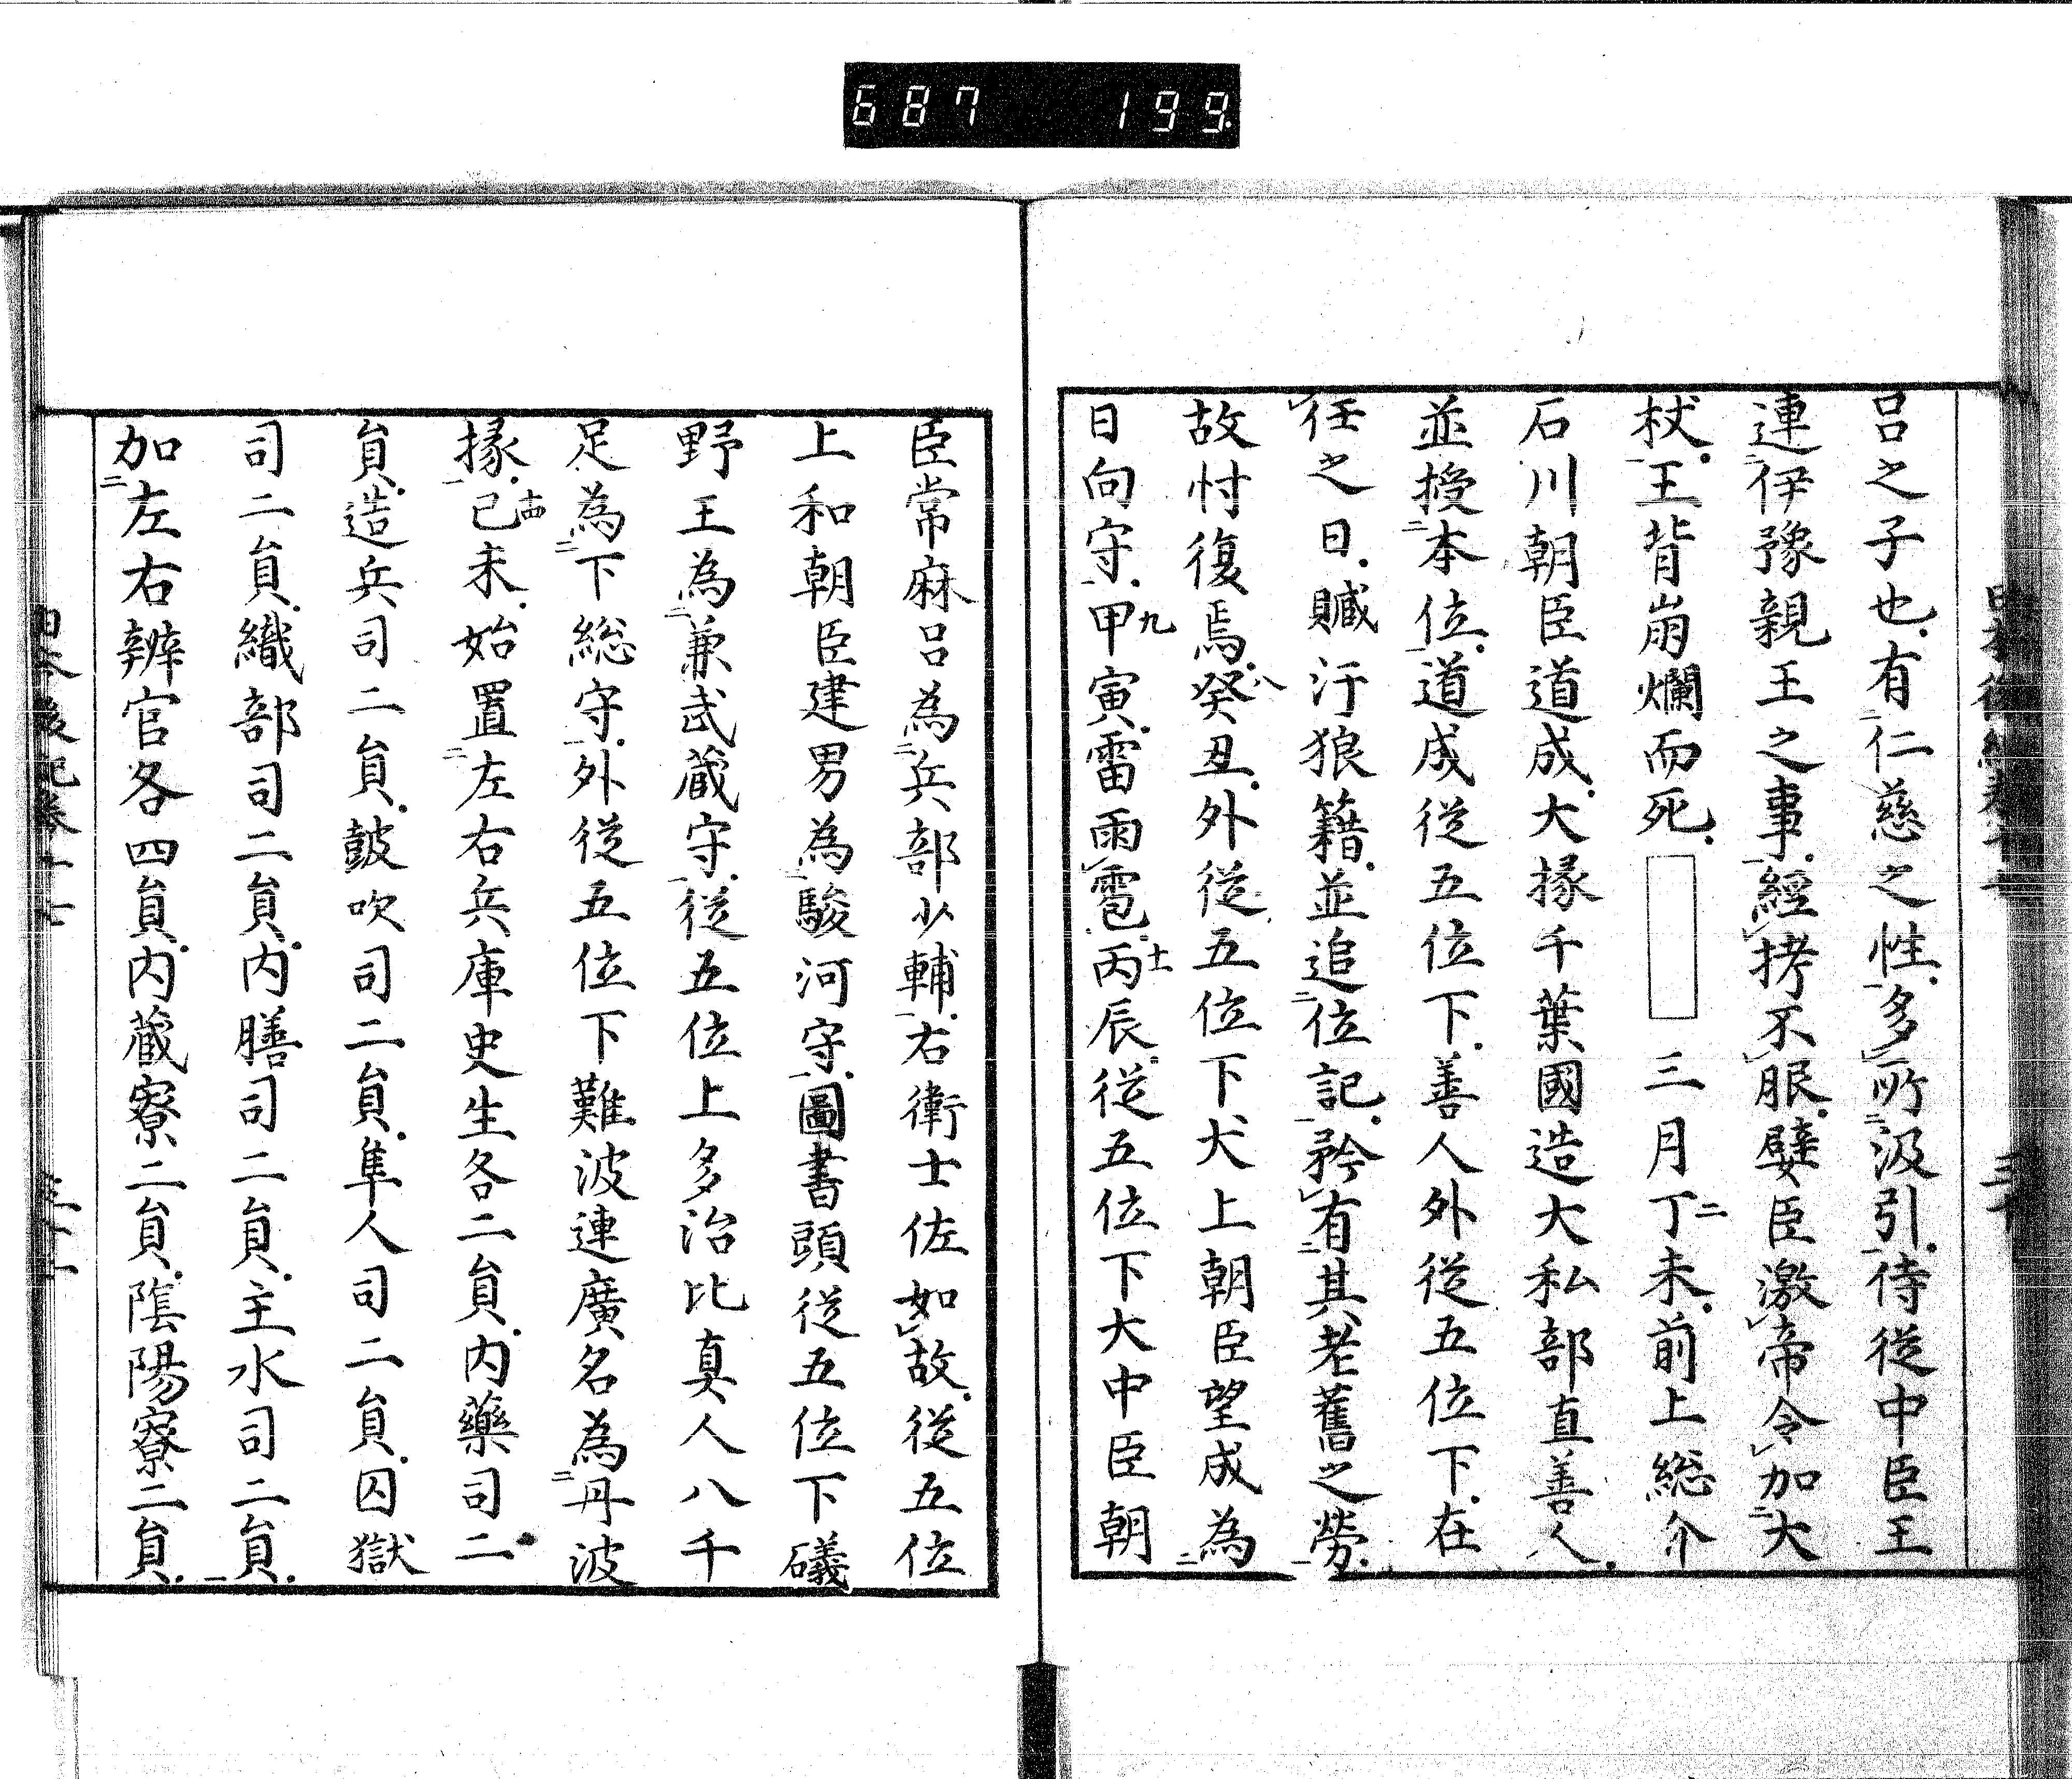 687 199
呂之子也有仁慈之性多所汲引侍従中臣王
連伊豫親王之事経拷不服嬖臣激帝令加大
杖王背崩爛而死 三月丁未二前上総介
石川朝臣道成大掾千葉國造大私部直善人
並授本位道成従五位下善人外従五位下在
任之日贓汙狼籍並追位記矜有其老舊之勞
故忖復焉癸八丑外従五位下犬上朝臣望成為
日向守甲九寅雷雨雹丙十一辰従五位下大中臣朝
臣常麻呂為兵部少輔右衛士佐如故従五位
上和朝臣建男為駿河守圖書頭従五位下礒
野王為兼武蔵守従五位上多治比真人八千
足為下総守外従五位下難波連廣名為丹波
掾己十四未始置左右兵庫史生各二員内藥司二
員造兵司二員鼓吹司二員隼人司二員囚獄
司二員織部司二員内膳司二員主水司二員
加左右辨官各四員内蔵寮二員陰陽寮二員
日本後紀巻十七